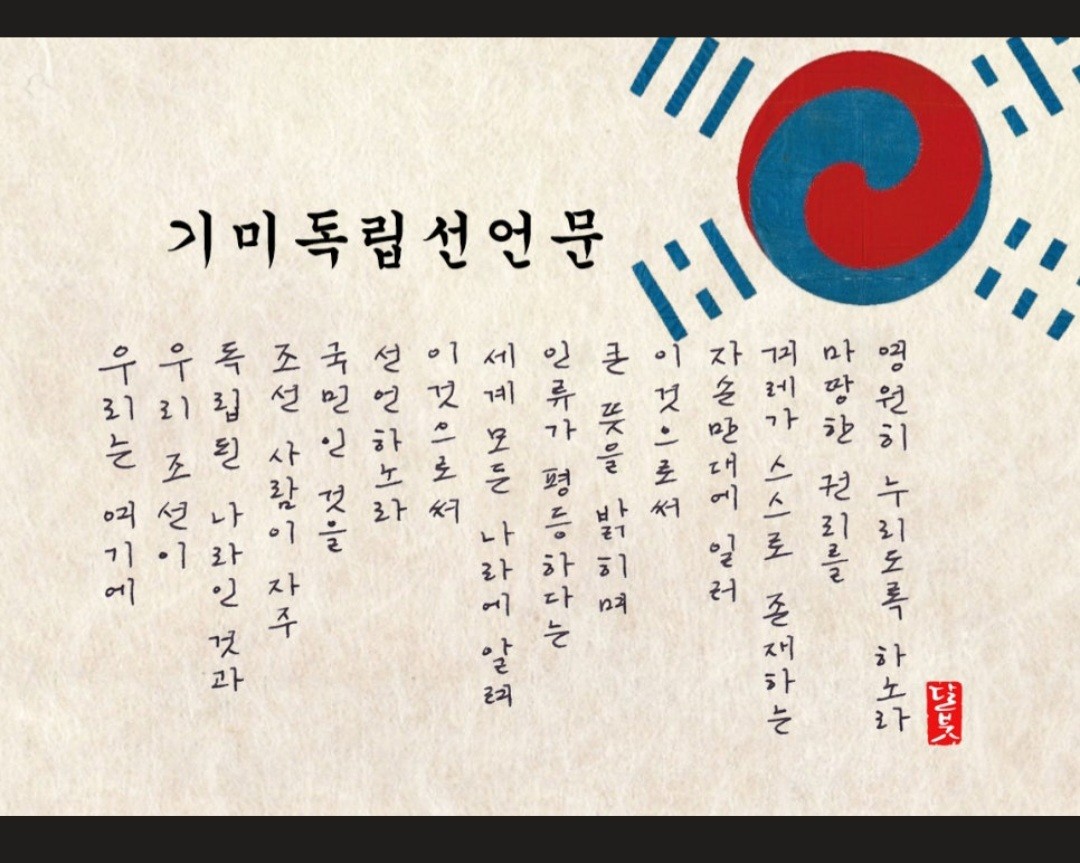 기미독립선언문
우리는 여기에
우리 조선이
독립된 나라인 것과
조선 사람이 자주
국민인 것을
선언하노라
이것으로써
세계 모든 나라에 알려
인류가 평등하다는
큰 뜻을 밝히며
이것으로써
자손만대에 일러
겨레가 스스로 존재하는
마땅한 권리를
영원히 누리도록 하노라
달붓